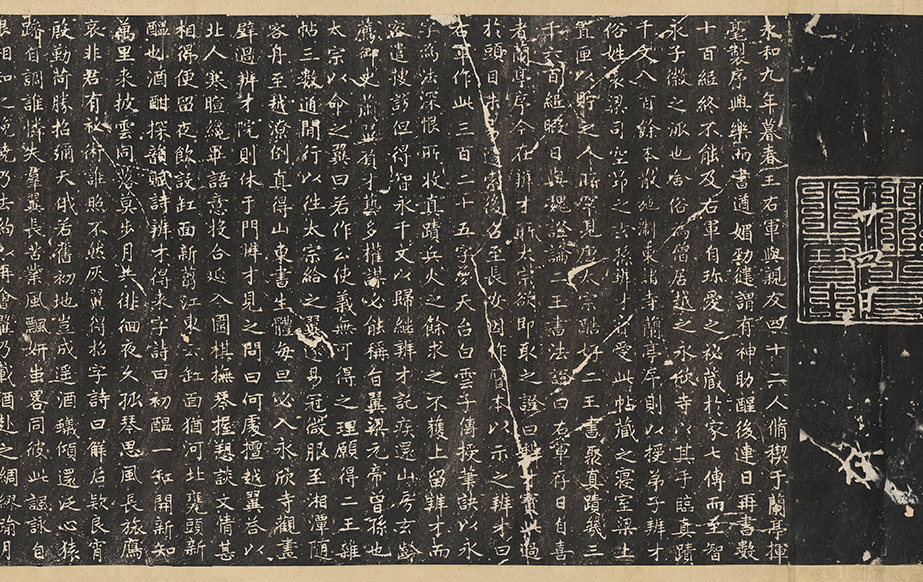 永和九年暮春王右軍與親友四十二人脩禊于蘭亭揮
毫製序興樂而書遒媚勁健謂有神助醒後連日再書數
十百紙終不能及右軍自珍愛之秘藏於家七傳而至智
永子徽之派也舍俗為僧居越之永欣寺以其手臨真蹟
千文八百餘本散施浙東諸寺蘭亭序則以授弟子辨才
俗姓袁梁司空昂之玄孫辨才受此帖藏之寢室梁上
置匣以貯之人所罕見唐太宗酷好二王書聚真蹟幾三
千六百紙暇日與魏證論二王書法證曰右軍存日自喜
者蘭亭序今在辨才所太宗欲即取之證曰辨才寶此過
於頭目未可遽索後召至長安因作贗本以示之辨才曰
右軍作此三百二十五字夢天台白雲子傳授筆訣以永
字為法深恨所收真蹟兵火之餘求之不獲上留辨才而
密遣搜訪但得智永千文以歸繼辨才託疾還山房玄齡
薦御史蕭翼有才藝多權謀必能稱旨翼梁元帝曾孫也
太宗以命之翼曰若作公使義無可得之理願得二王雜
帖三數通間行以往太宗給之翼遂易冠微服至湘潭随
客舟至越潦倒真得山東書生體每旦必入永欣寺觀畫
壁過辨才院則休于門辨才見之問曰何處檀越翼答以
北人寒暄纔畢語意投合延入圍棋撫琴握槊談文情甚
相得便留夜飲設缸面新蒭江東云缸面猶河北甕頭新
醞也酒酣探韻賦詩辨才得来字詩曰初醞一缸開新知
萬里来披雲同落莫步月共徘徊夜久孤琴思風長旅鴈
哀非君有秘術誰照不然灰翼得招字詩曰邂逅款良宵
殷勤荷勝招彌天俄若舊初地豈成遥酒蟻傾還泛心猿
躁自調誰憐失羣翼長苦業風飄妍蚩畧同彼此諷詠自
恨相知之晚乃去約以再會翼乃載酒赴之綢繆踰月